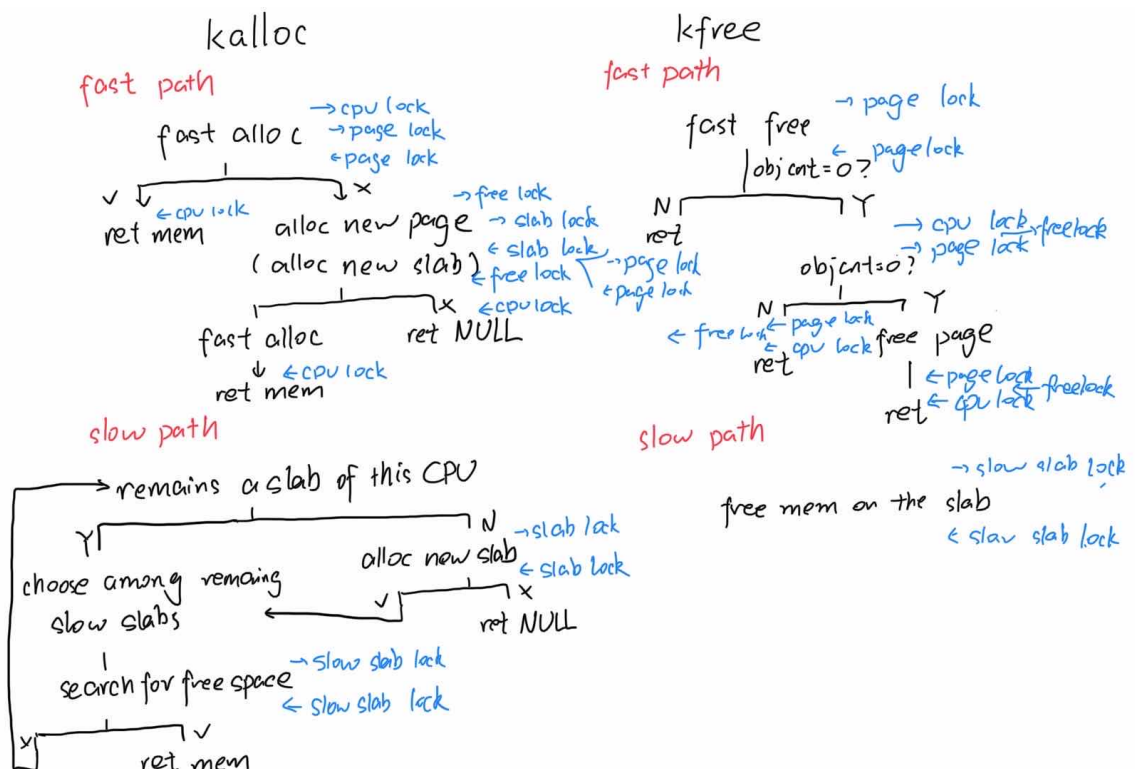 kalloc
fast path
fast alloc
→ cpu lock
→ page lock
← page lock
✓
X
ret mem
← cpu lock
alloc new page
(alloc new slab)
→ free lock
→ slab lock
← slab lock
→ page lock
← page lock
← free lock
← cpu lock
X
fast alloc
ret NULL
← cpu lock
ret mem
slow path
remains a slab of this CPU
Y
N
→ slab lock
alloc new slab
← slab lock
choose among remaing
slow slabs
✓
X
ret NULL
search for free space
→ slow slab lock
← slow slab lock
X
✓
ret mem
kfree
fast path
→ page lock
fast free
← page lock
objcnt=0?
N
Y
ret
→ cpu lock
→ page lock
→ freelock
objcnt=0?
N
Y
← free lock
← page lock
← cpu lock
ret
free page
← page lock
← cpu lock
← freelock
ret
slow path
→ slow slab lock
free mem on the slab
← slav slab lock